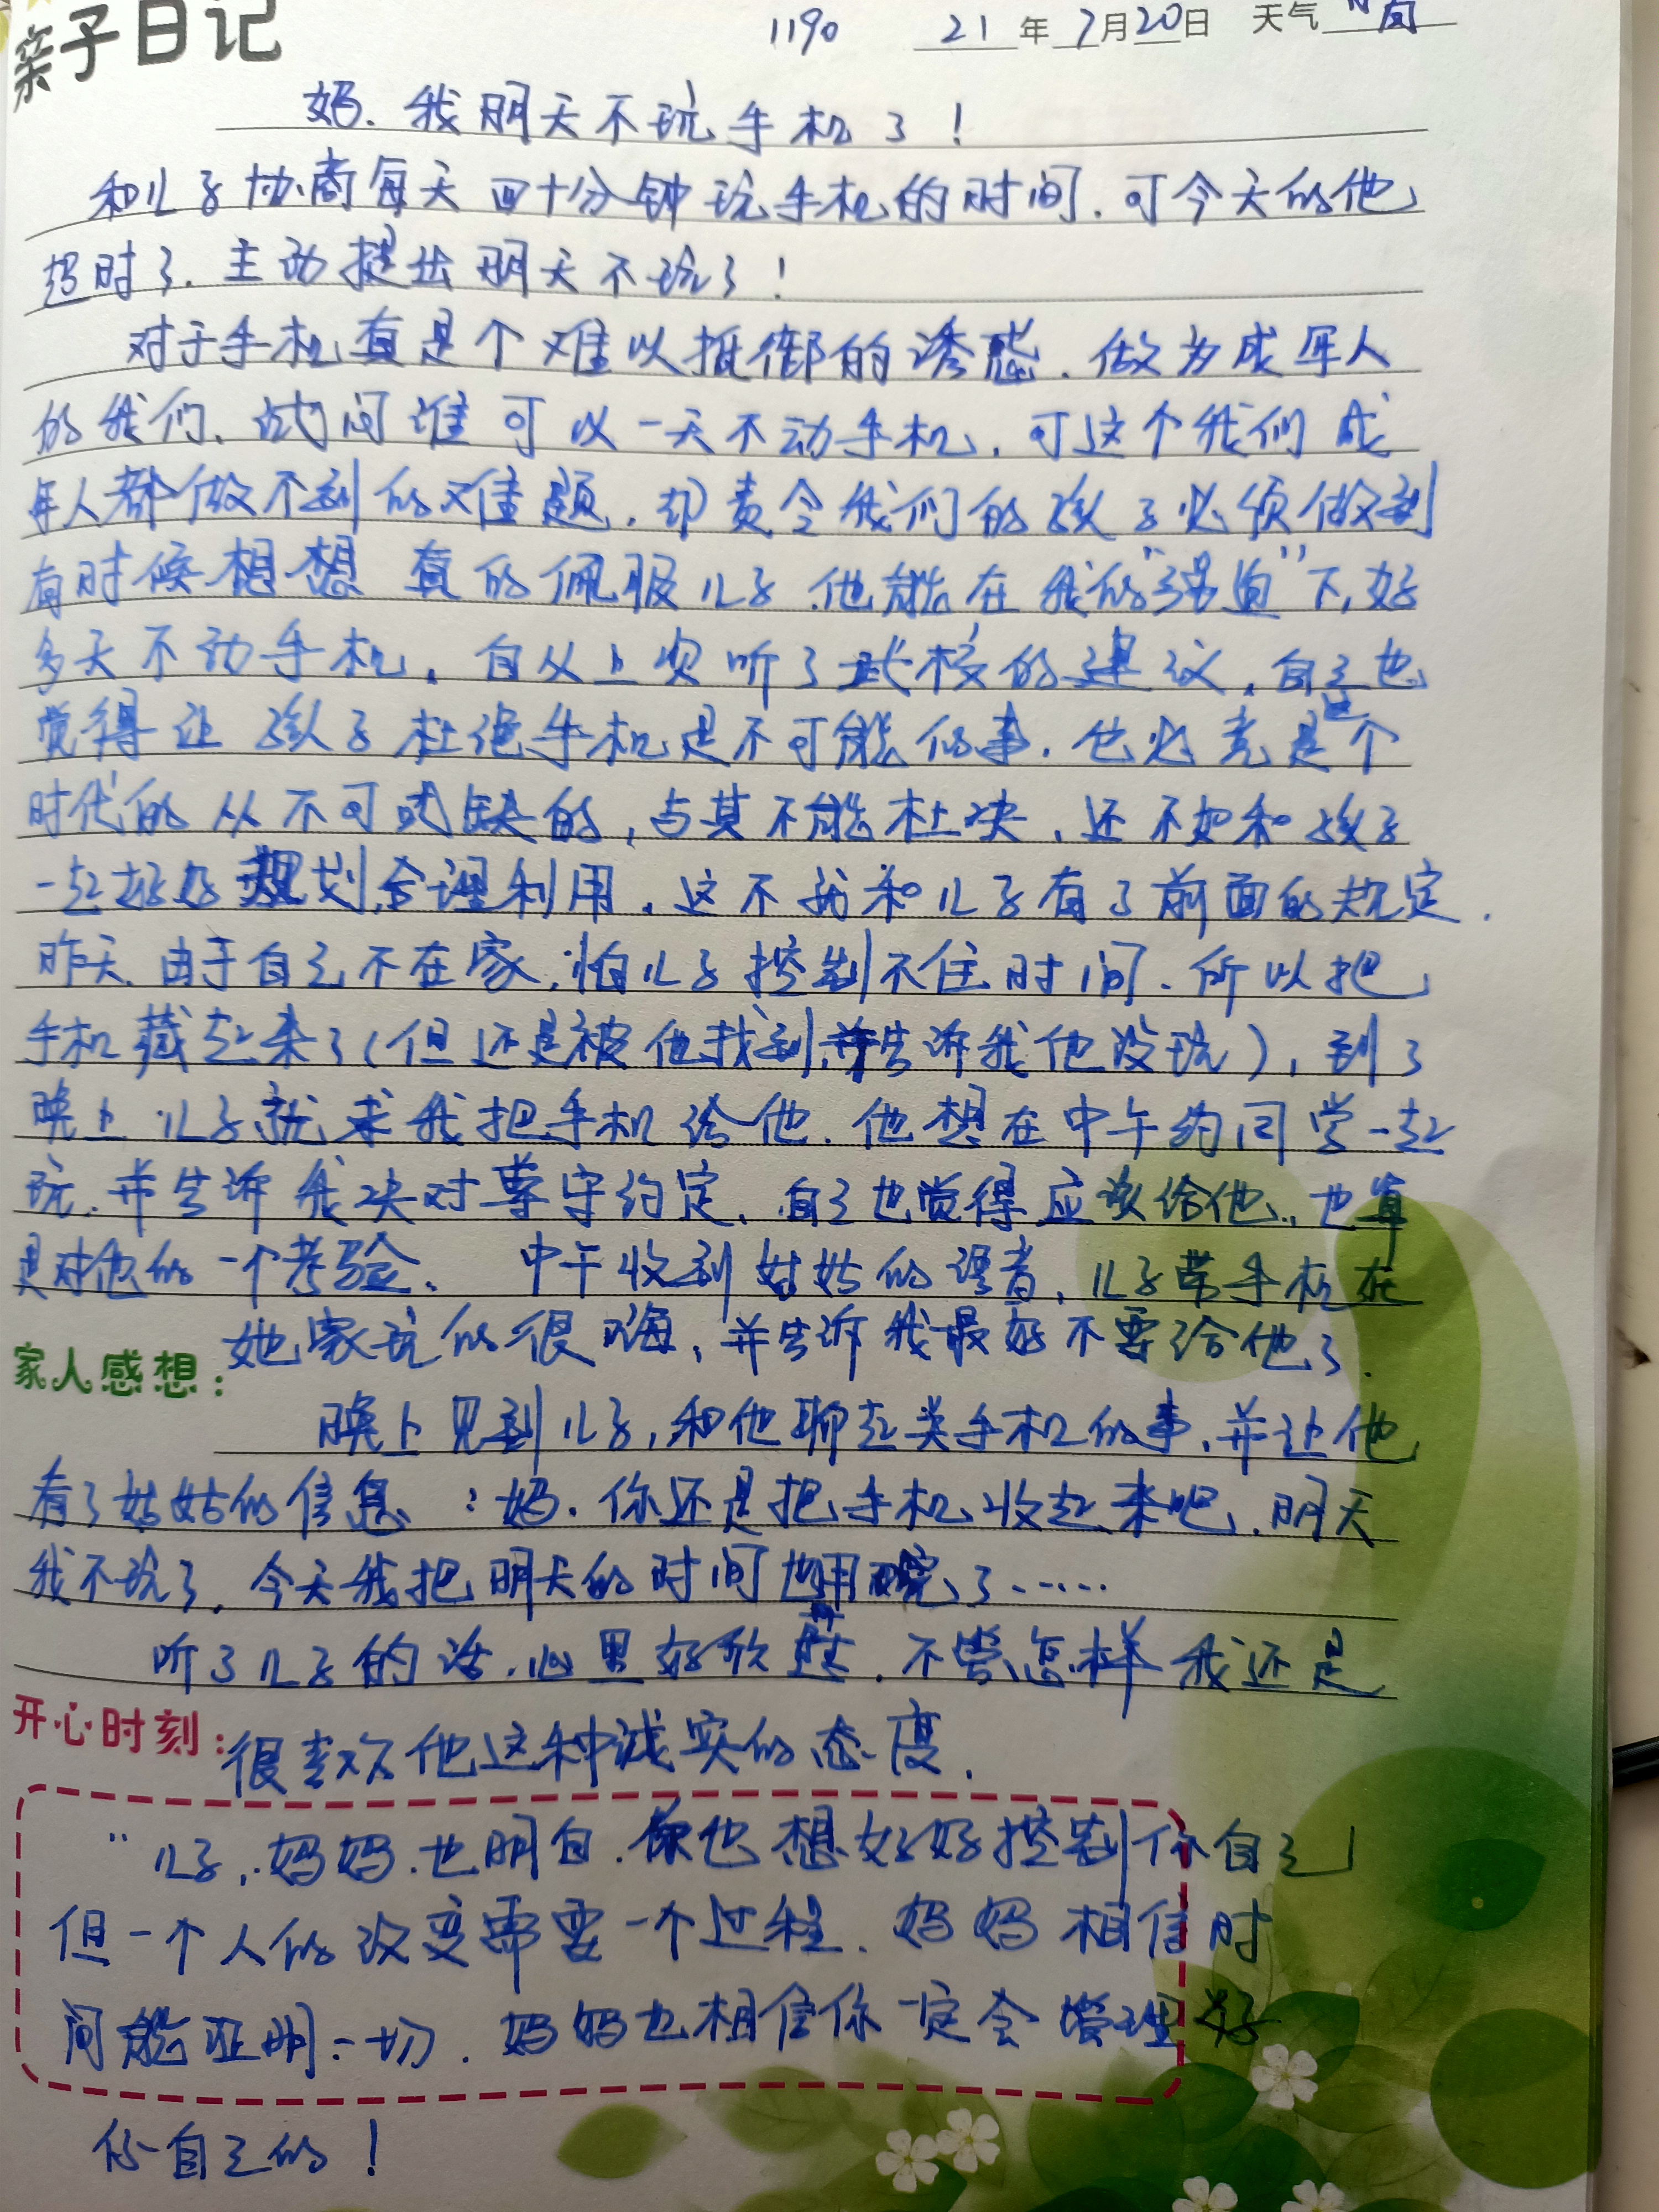 亲子日记
1190 21年7月20日 天气
妈.我明天不玩手机了!
和儿子协商每天四十分钟玩手机的时间.可今天的他
超时了.主动提出明天不玩了!
对于手机真是个难以抵御的诱惑.做为成年人
的我们.试问谁可以一天不动手机,可这个我们成
年人都做不到的难题.却责令我们的孩子必须做到
有时候想想真的佩服儿子.他能在我的"强迫"下,好
多天不动手机.自从上次听了武校的建议,自己也
觉得让孩子杜绝手机是不可能的事.它必竟是这个
时代的从不可或缺的,与其不能杜决,还不如和孩子
一起好好规划,合理利用.这不就和儿子有了前面的规定.
昨天.由于自己不在家,怕儿子控制不住时间.所以把
手机藏起来了(但还是被他找到,并告诉我他没玩),到了
晚上儿子就求我把手机给他.他想在中午约同学一起
玩.并告诉我决对尊守约定,自己也觉得应该给他.也算
是对他的一个考验.中午收到姑姑的语音,儿子带手机在
她家玩的很嗨,并告诉我最好不要给他了.
家人感想:
晚上见到儿子,和他聊起关手机的事.并让他
看了姑姑的信息:妈.你还是把手机收起来吧.明天
我不玩了.今天我把明天的时间也用完了……
听了儿子的话.心里好欣慰.不管怎样我还是
开心时刻:
很喜欢他这种诚实的态度.
"儿子,妈妈也明白.你也想好好控制你自己
但一个人的改变需要一个过程.妈妈相信时
间能证明一切.妈妈也相信你一定会管理好
你自己的!